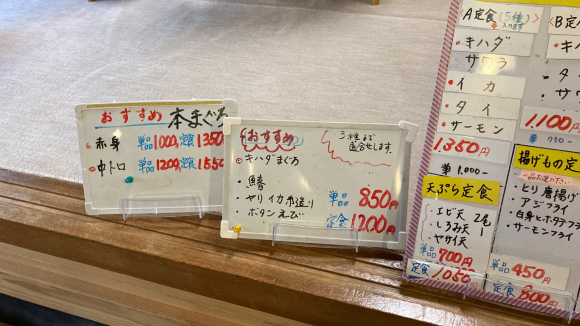 おすすめ 本まぐろ
赤身 単品1000 定食1350
中トロ 単品1200 定食1550
おすすめ
3種まで
盛合せします。
キハダまぐろ
ヤリイカ
ボタンえび
単品 850円
定食 1200円
A定食(5種)
入ります
キハダ
サワラ
イカ
タイ
サーモン
1350円
単 1,000-
天ぷら定食
・エビ天 2尾
・しろみ天
・ヤサイ天
単品 700円
定食 1,050
B定食
・キ
1100円
750-
揚げもの定
一品お選び下さい
・とり唐揚げ
・アジフライ
・白身とホタテフラ
・サーモンフライ
単品 450円
定食 800円